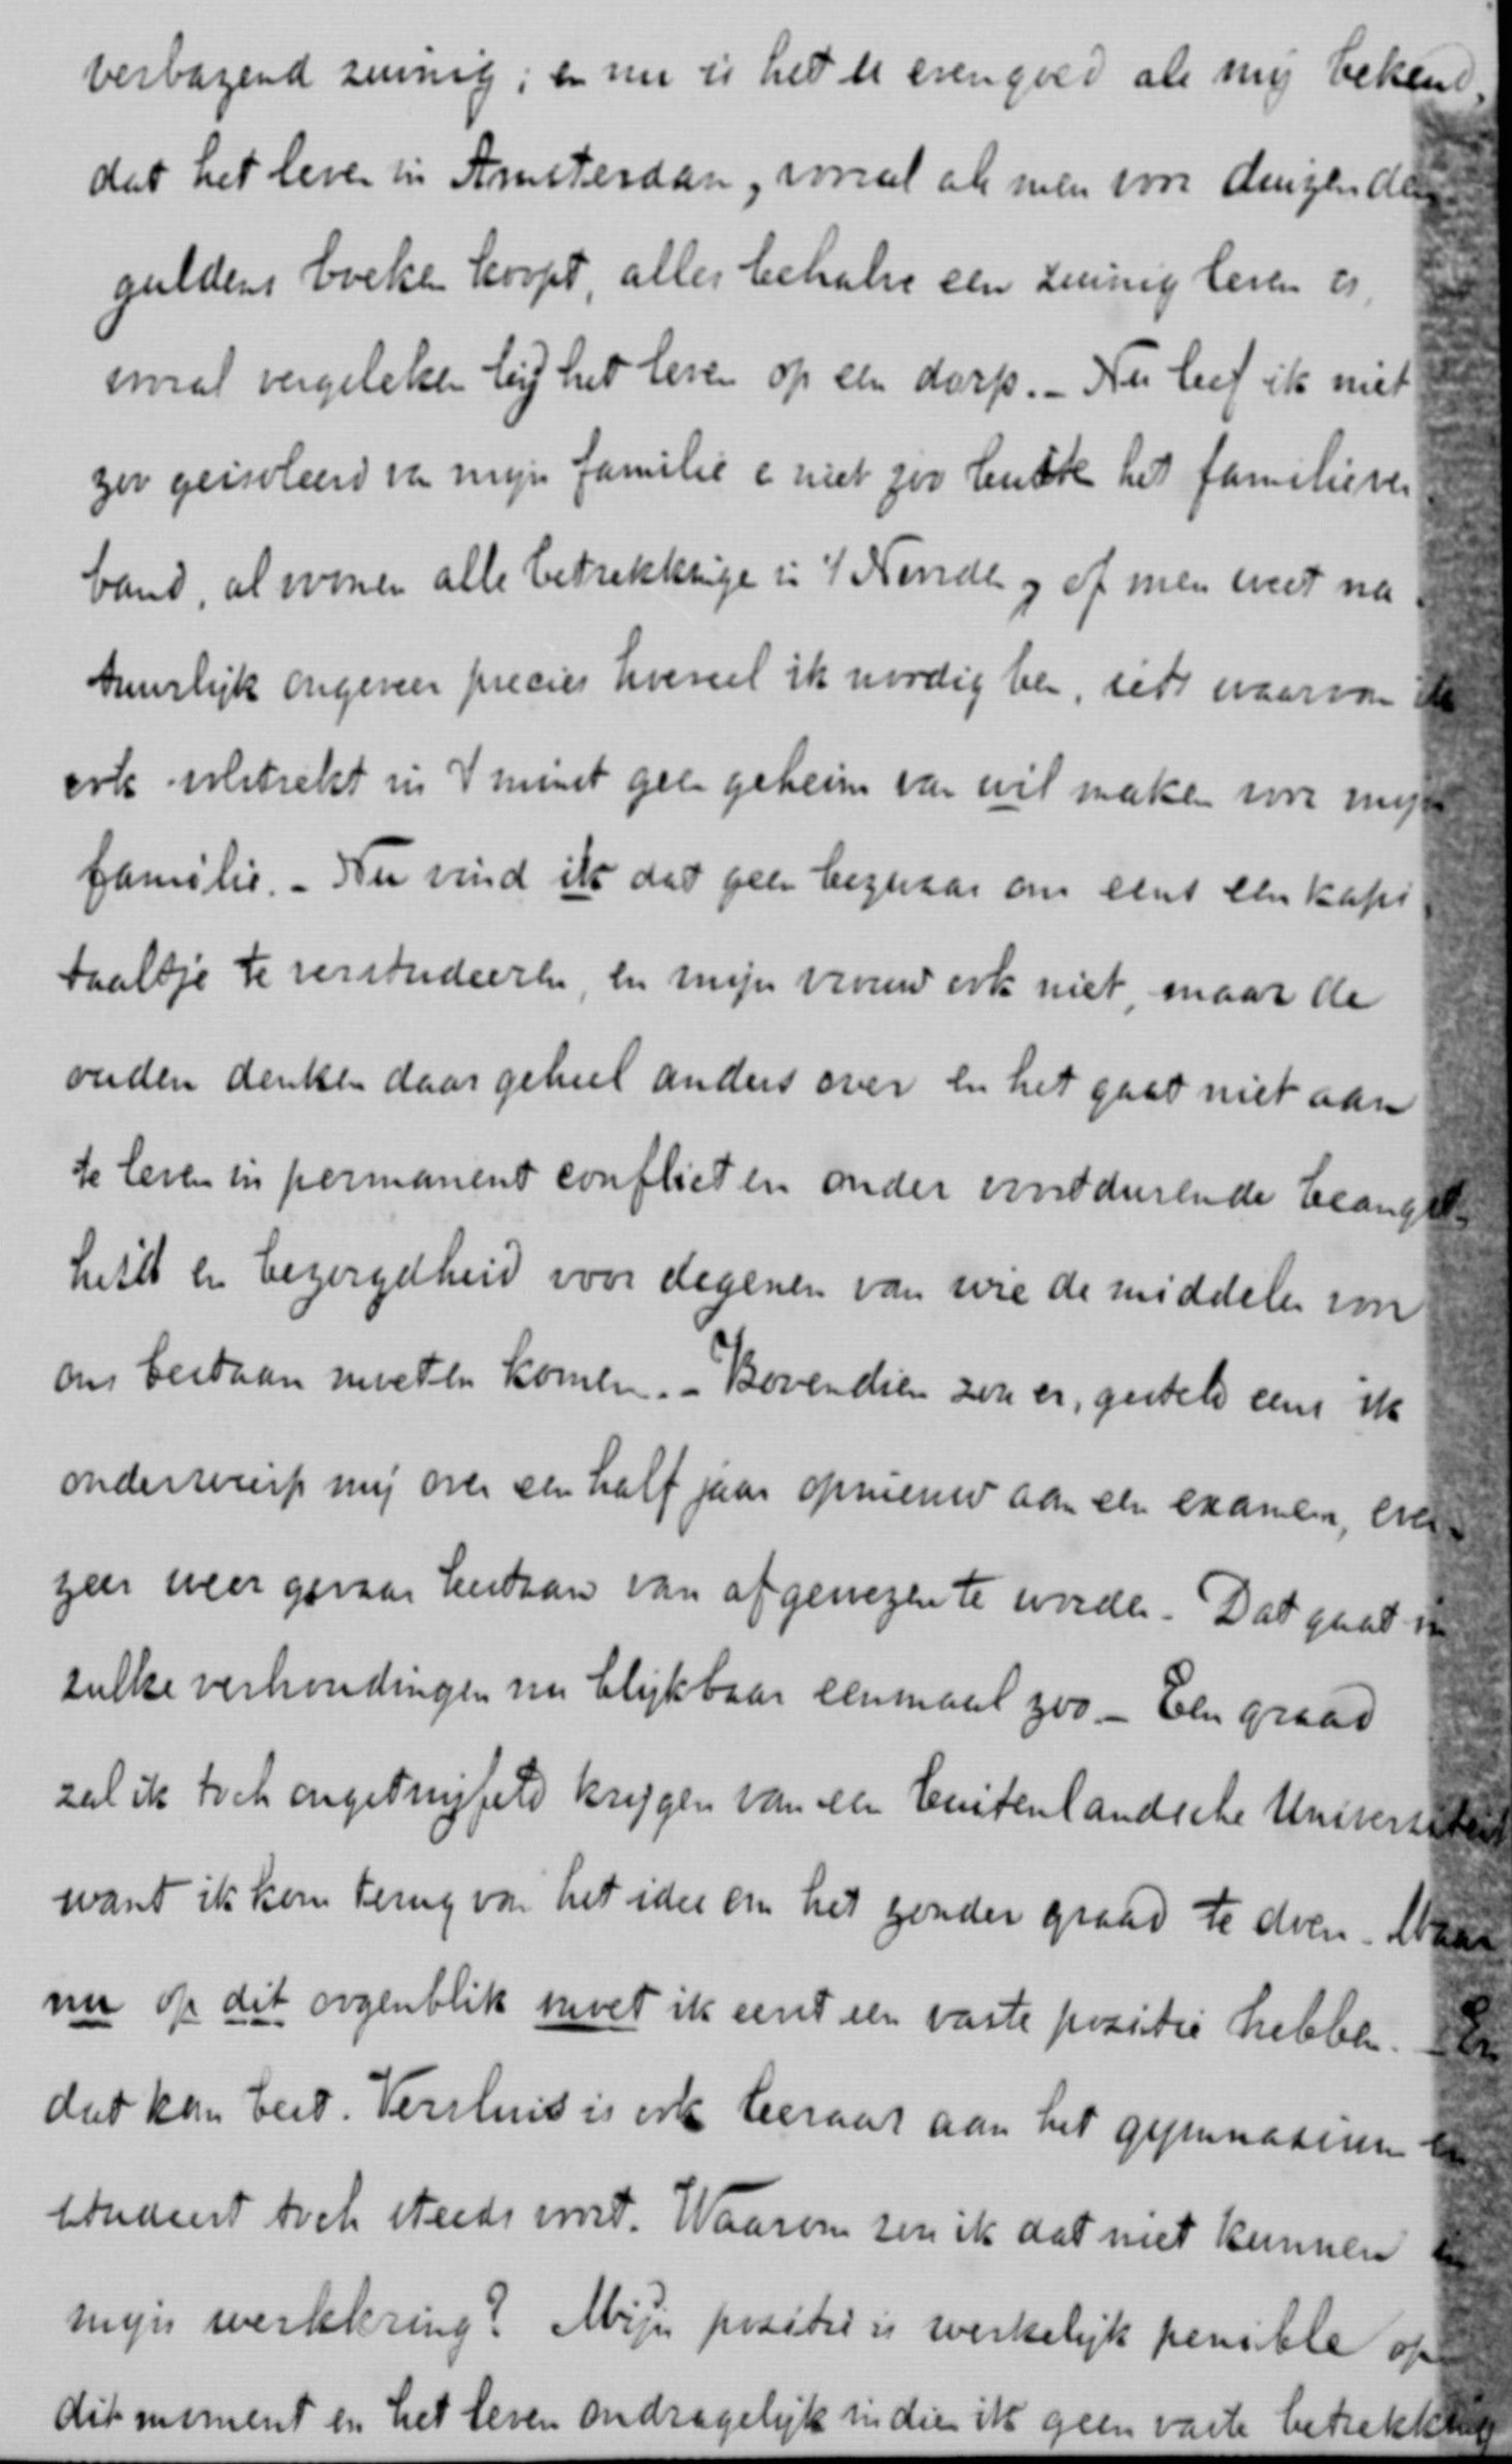 verbazend zuinig; en nu is het U evengoed als mij bekend,
dat het leven in Amsterdam, vooral als men voor duizenden
guldens boeken koopt, alles behalve een zuinig leven is,
vooral vergeleken bij het leven op een dorp. – Nu leef ik niet
zoo geisoleerd van mijn familie en niet zoo buiten het familiever
band, al wonen alle betrekkingen in 't Noorden, of men weet na
tuurlijk ongeveer precies hoeveel ik noodig ben, iets waarvan ik
ook volstrekt in 't minst geen geheim van wil maken voor mijn
familie. – Nu vind ik dat geen bezwaar om eens een kapi
taaltje te verstudeeren, en mijn vrouw ook niet, maar de
ouden denken daar geheel anders over en het gaat niet aan
te leven in permanent conflict en onder voortdurende beangst-
heid en bezorgdheid voor degenen van wie de middelen voor
ons bestaan moeten komen. – Bovendien zou er, gesteld eens ik
onderwierp mij over een half jaar opnieuw aan een examen, even-
zeer weer gevaar bestaan van afgewezen te worden. – Dat gaat in
zulke verhoudingen nu blijkbaar eenmaal zoo – Een graad
zal ik toch ongetwijfeld krijgen van een buitenlandsche Universiteit
want ik kom terug van het idee om het zonder graad te doen. – Maar
nu op dit oogenblik moet ik eerst een vaste positie hebben. – En
dat kan best. Versluis is ook leeraar aan het gymnasium en
studeert toch steeds voort. Waarom zou ik dat niet kunnen in
mijn werkkring? Mijn positie is werkelijk penible op
dit moment en het leven ondragelijk indien ik geen vaste betrekking